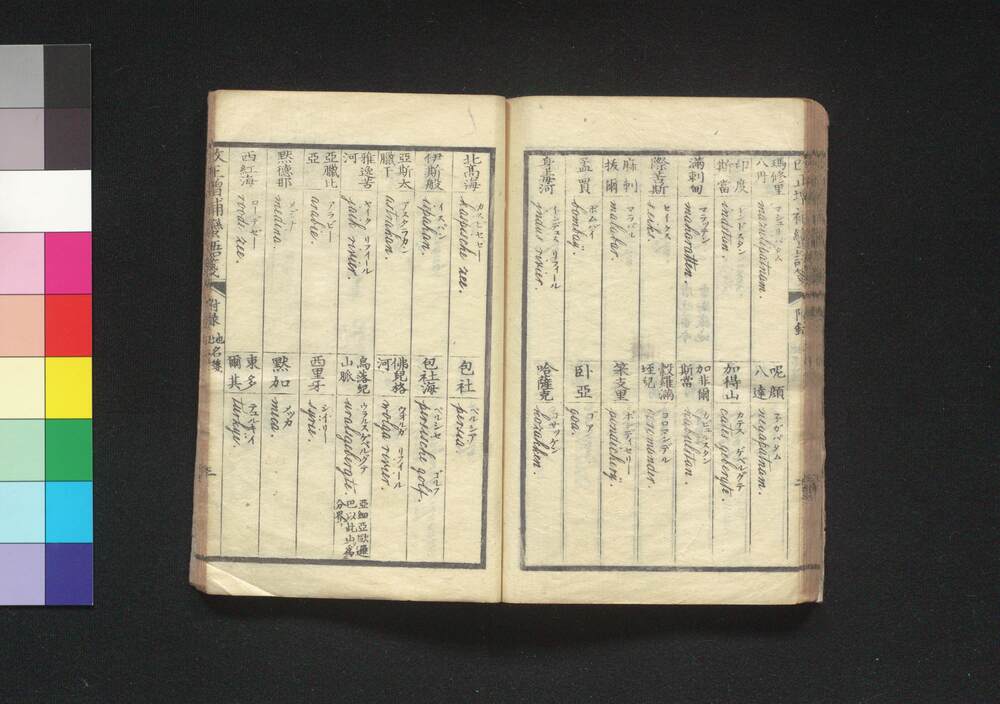 瑪修里八丹
マシュリパタン
mazulipatnam.
印度斯當
インドスタン
indistan.
滿剌甸
マラッテン
maharatten.
際苦斯
セイクス
seiks.
麻剌拔爾
マラバル
malabar.
孟買
ボムバイ
bombaÿ.
身毒河
インデュス リフィール
indus rivier.
呢顔八達
ネガパタム
negapatnam.
加得山
カテス ゲベルグテ
cates gebergte.
加非爾斯當
カビュリスタン
kabulitan.
穀羅滿垤兒
コロマンデル
coromander.
笨支里
ポンディセリー
pondicherÿ.
卧亞
ゴア
goa.
哈薩克
コサッケン
kozakken.
北高海
カスピセ ゼー
kaspische zee.
伊斯般
イスパハン
ispahan.
亞斯太臘干
アスタラカン
astrahan.
雅逸苦河
ヤイク リフィール
jaik rivier.
亞臘比亞
アラビー
arabie.
默德那
メディナ
medina.
西紅海
ローデ ゼー
roode zee.
包社
ペルシア
persia.
包社海
ペルシセ ゴルフ
persische golf.
佛兒格河
ウォルガ リフィール
wolga rivier.
烏落紀山脈
ウラルスゲベルグテ
uralsgebergte.
亞細亞歐邏巴以此山為分界
西里牙
シイリー
syrie.
默加
メッカ
meca.
東多爾其
テュルケイ
turkye.
改正增補蠻語箋
附録
地名箋
三